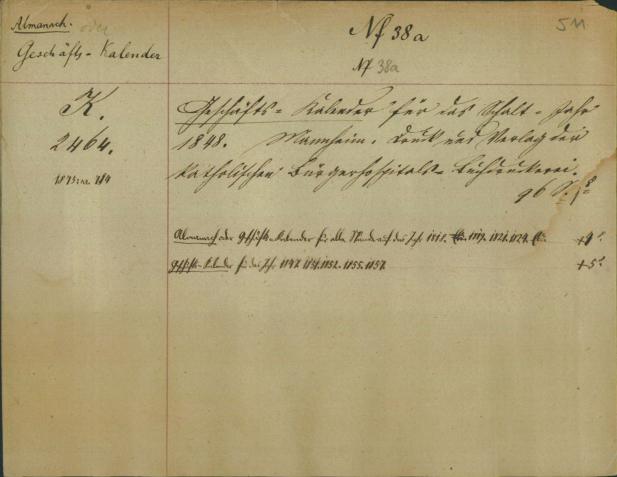 Almanach.
oder
Geschäfts-Kalender
Nf 38a
Nf 38a
511
K.
2464.
Geschäfts-Kalender für das Schalt-Jahr
1848. Mannheim. Druck und Verlag der
Katholischen Bürgerhospitals-Buchdruckerei.
96 S. 8°
Almanach oder Geschäfts-Kalender für alle Stände auf das Jahr
Geschäfts-Kalender für das Jahr 1847. 1851. 1852. 1855. 1857.